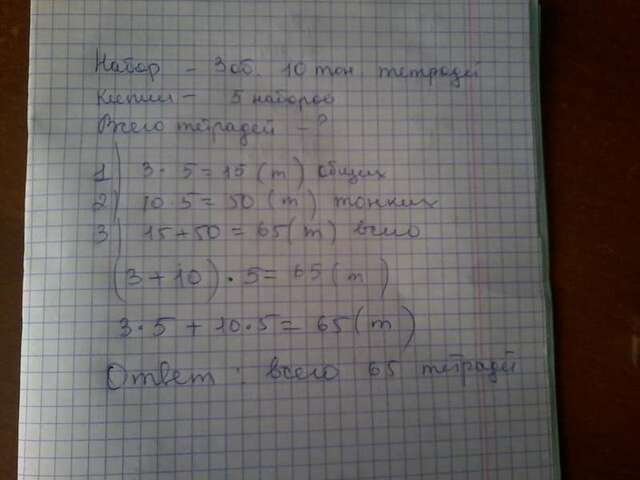 Набор - 3 об. 10 тон. тетрадей
Купили - 5 наборов
Всего тетрадей - ?
1) 3 · 5 = 15 (т) общих
2) 10 · 5 = 50 (т) тонких
3) 15 + 50 = 65 (т) всего
(3 + 10) · 5 = 65 (т)
3 · 5 + 10 · 5 = 65 (т)
Ответ : всего 65 тетрадей